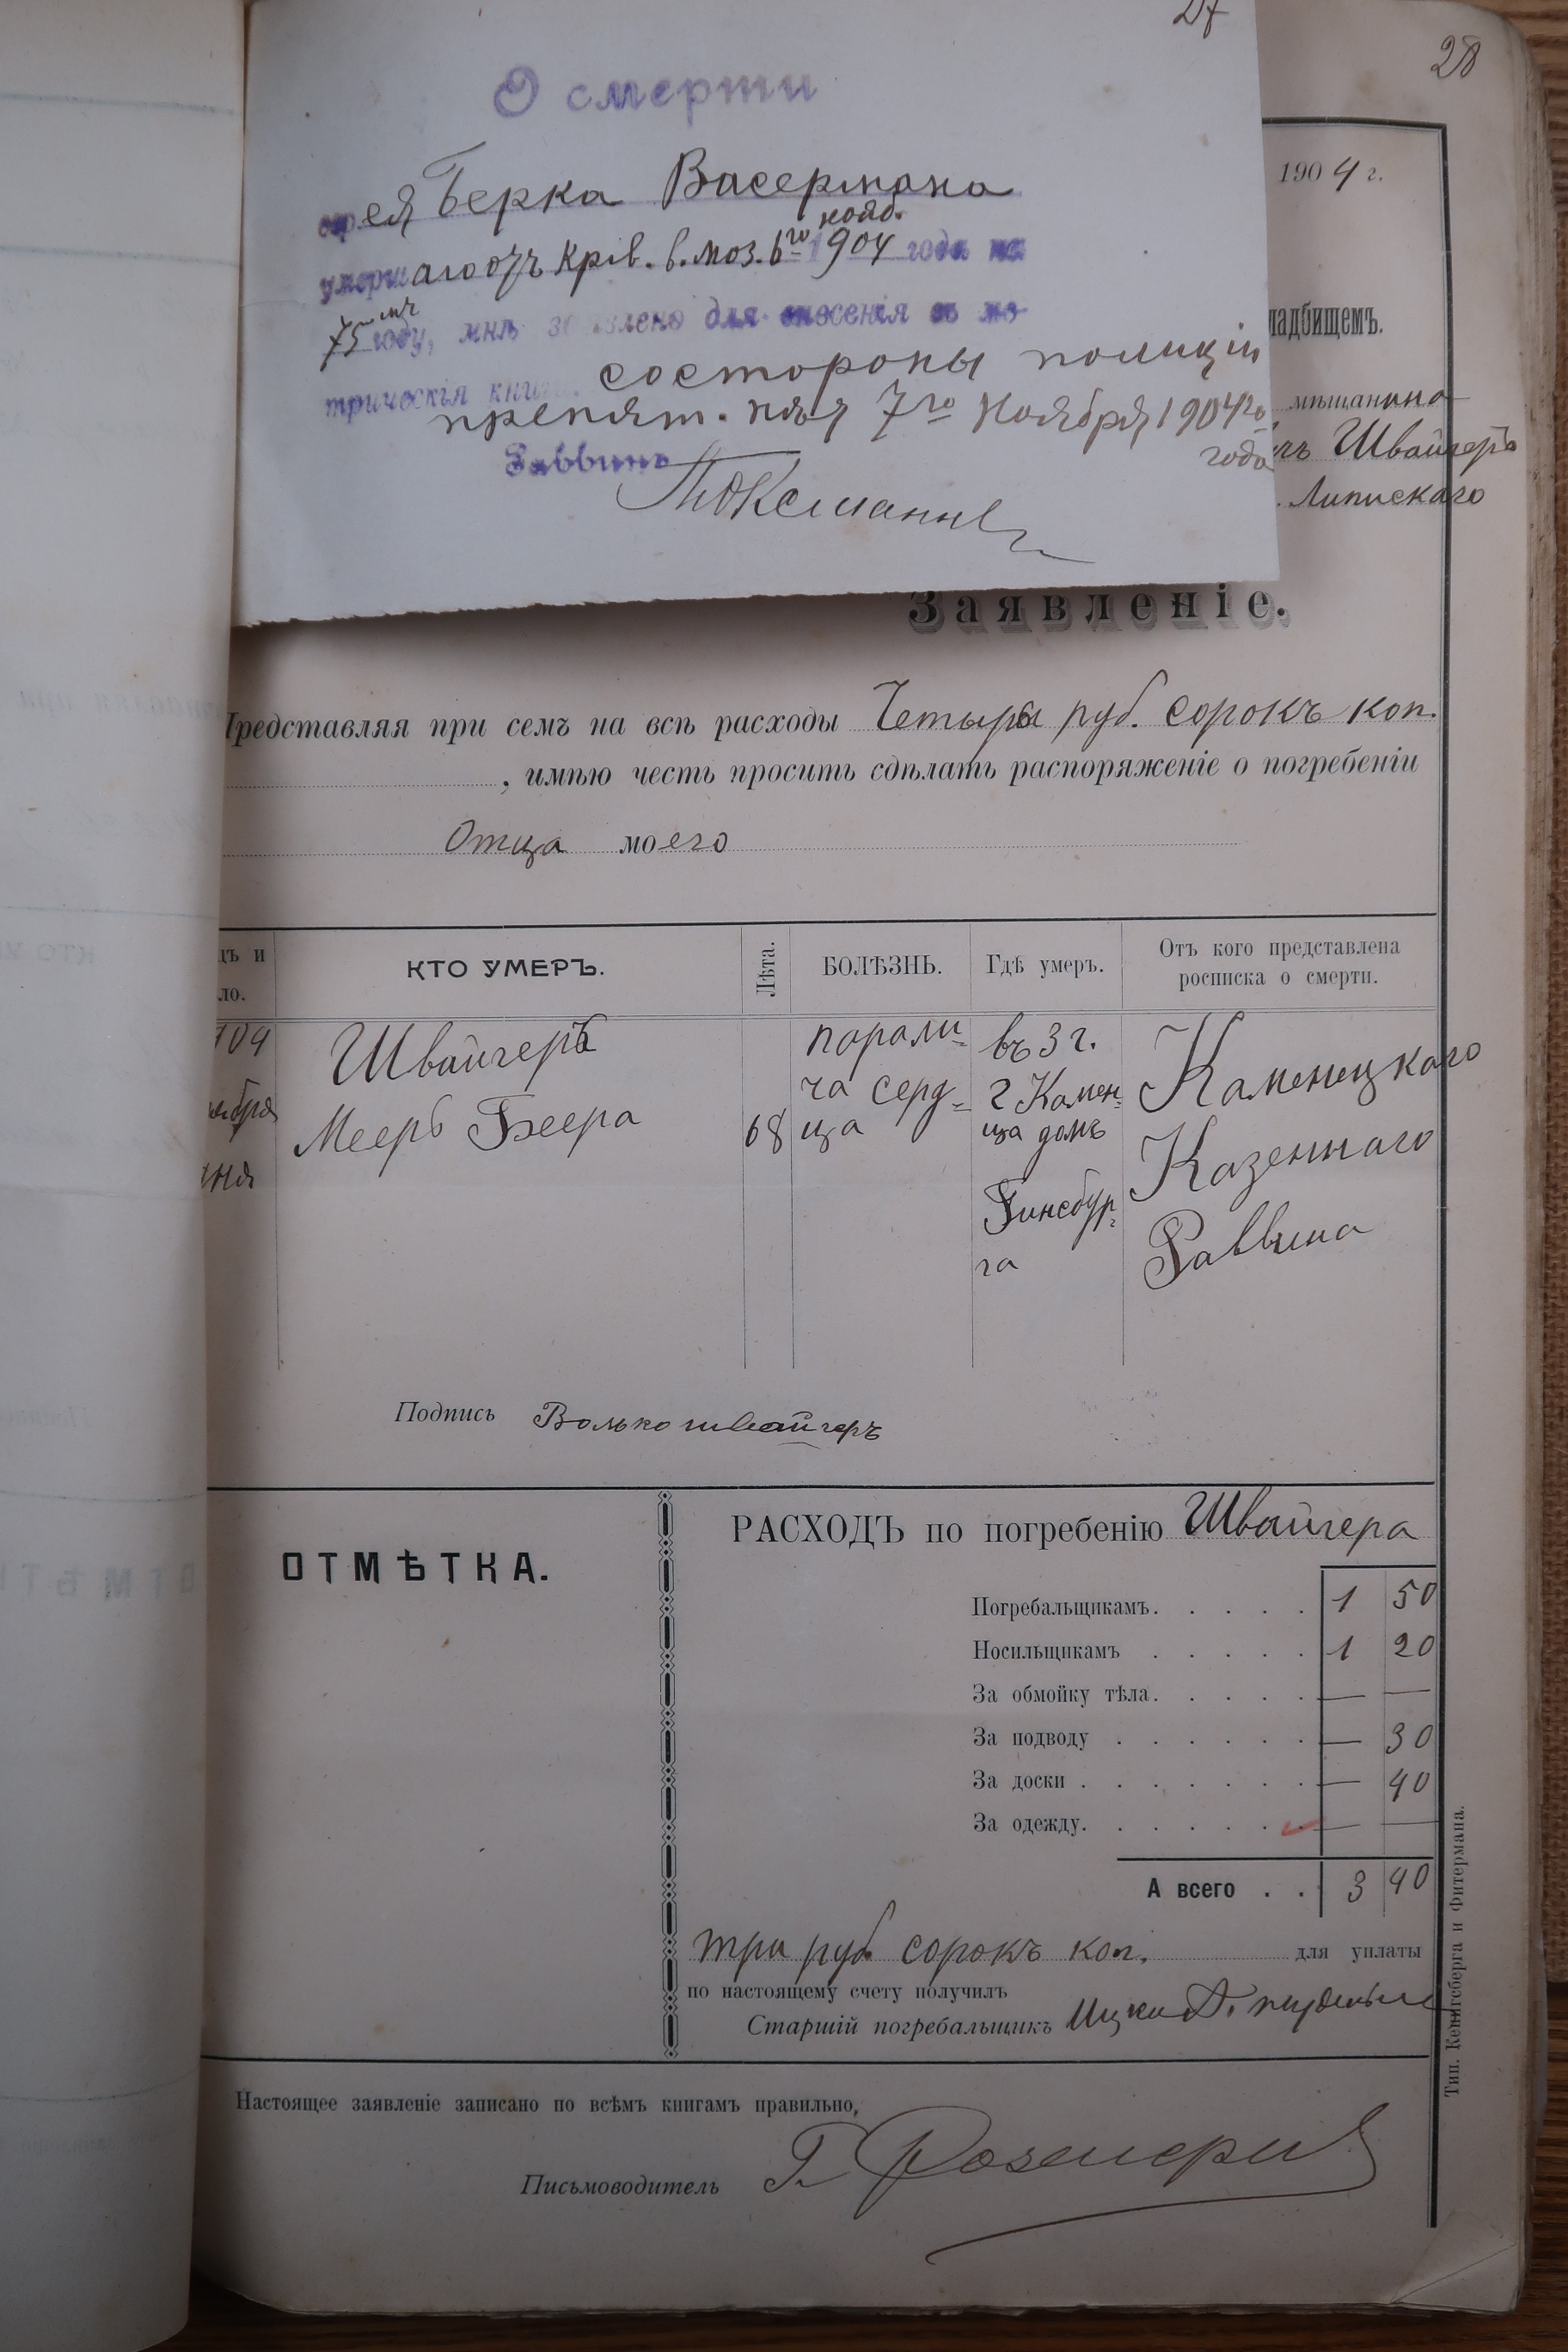 27
О смерти
ея Берка Васермана
нояб.
умершаго отъ Крів. в. моз. 6го 1904 года на
75мъ году, мнѣ заявлено для внесенія въ ме-
трическія книги. состороны полиціи
препят. нѣт 7го Ноября 1904го
года
Раввинъ
28
1904 г.
ладбищемъ.
мѣщанина
чъ Швайгеръ
Липискаго
Заявленіе.
Представляя при семъ на всѣ расходы Четыре руб. сорокъ коп.
, имѣю честь просить сдѣлать распоряженіе о погребеніи
Отца моего
дъ и
ло.
КТО УМЕРЪ.
Лѣта.
БОЛѢЗНЬ.
Гдѣ умеръ.
Отъ кого представлена
росписка о смерти.
904
ября
дня
Швайгеръ
Мееръ Беера
68
парали-
ча серд-
ца
въ 3 г.
г Камен-
ца домъ
Гинсбур-
га
Каменецкаго
Казеннаго
Раввина
Подпись Волько швайгеръ
ОТМѢТКА.
РАСХОДЪ по погребенію Швайгера
Погребальщикамъ. . . . . 1 50
Носильщикамъ . . . . . 1 20
За обмойку тѣла. . . . . — —
За подводу . . . . . . — 30
За доски . . . . . . . — 40
За одежду. . . . . . — —
А всего . . 3 40
три руб сорокъ коп. для уплаты
по настоящему счету получилъ
Старшій погребальщикъ Ицко
Настоящее заявленіе записано по всѣмъ книгамъ правильно,
Письмоводитель Г.
Тип. Кенигсберга и Фитермана.